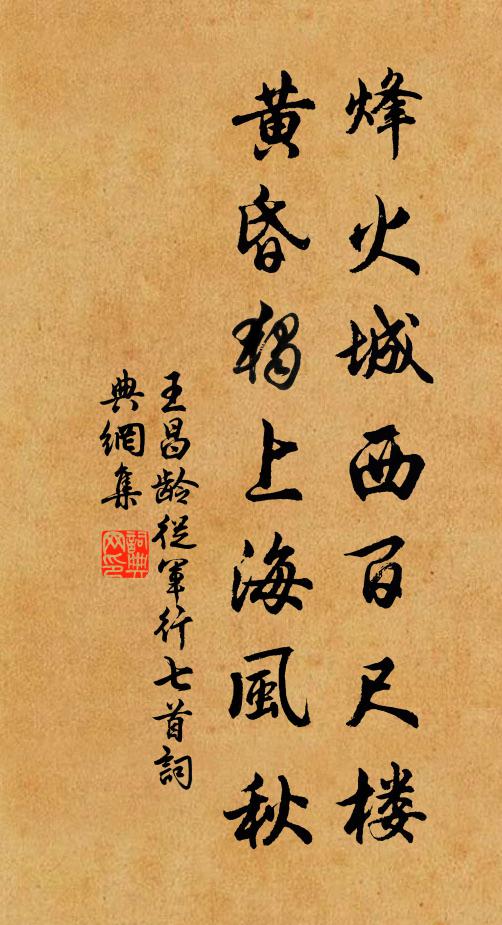 烽火城西百尺楼
黄昏獨上海風秋
王昌龄從軍行七首詞
典網集
詞典網印